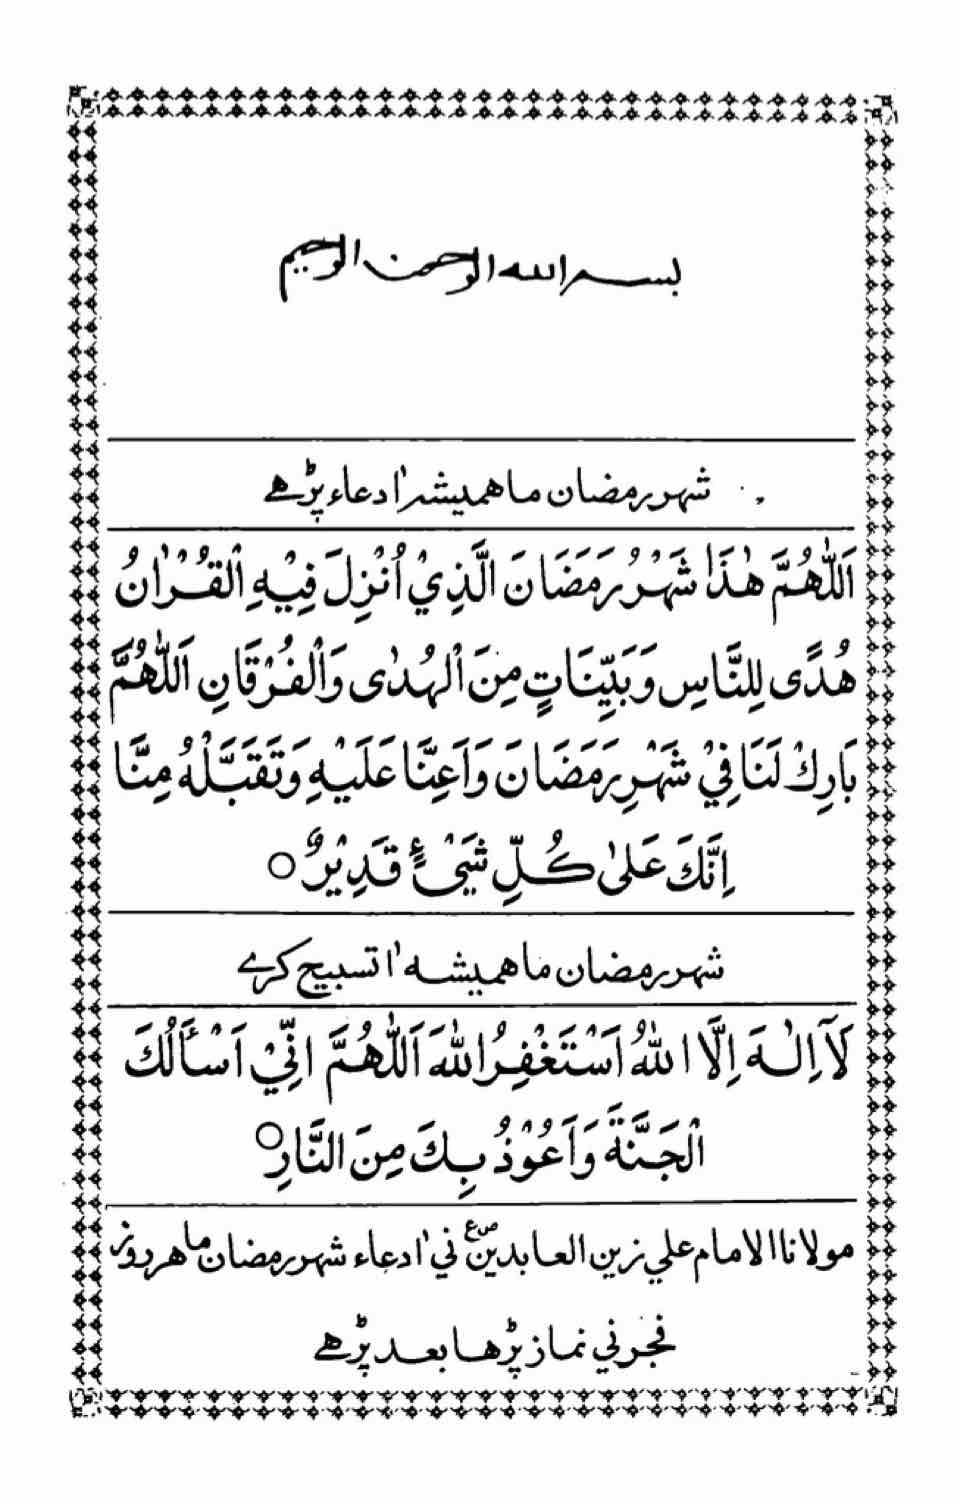 بسم الله الرحمن الرحيم
شهر رمضان ما هميشه اْ دعاء پڑهے
اَللّٰهُمَّ هٰذَا شَهْرُ رَمَضَانَ الَّذِيْ اُنْزِلَ فِيْهِ الْقُرْاٰنُ
هُدًى لِلنَّاسِ وَبَيِّنَاتٍ مِنَ الْهُدٰى وَالْفُرْقَانِ اَللّٰهُمَّ
بَارِكْ لَنَا فِيْ شَهْرِ رَمَضَانَ وَاَعِنَّا عَلَيْهِ وَتَقَبَّلْهُ مِنَّا
اِنَّكَ عَلىٰ كُلِّ شَيْئٍ قَدِيْرٌ ○
شهر رمضان ما هميشه اْ تسبيح كرے
لَآ اِلٰهَ اِلَّا اللهُ اَسْتَغْفِرُ اللهَ اَللّٰهُمَّ اِنِّيْ اَسْأَلُكَ
الْجَنَّةَ وَاَعُوْذُ بِكَ مِنَ النَّارِ ○
مولانا الامام علي زين العابدين ص ع ني اْ دعاء شهر رمضان ما هر روز
فجر ني نماز پڑها بعد پڑهے